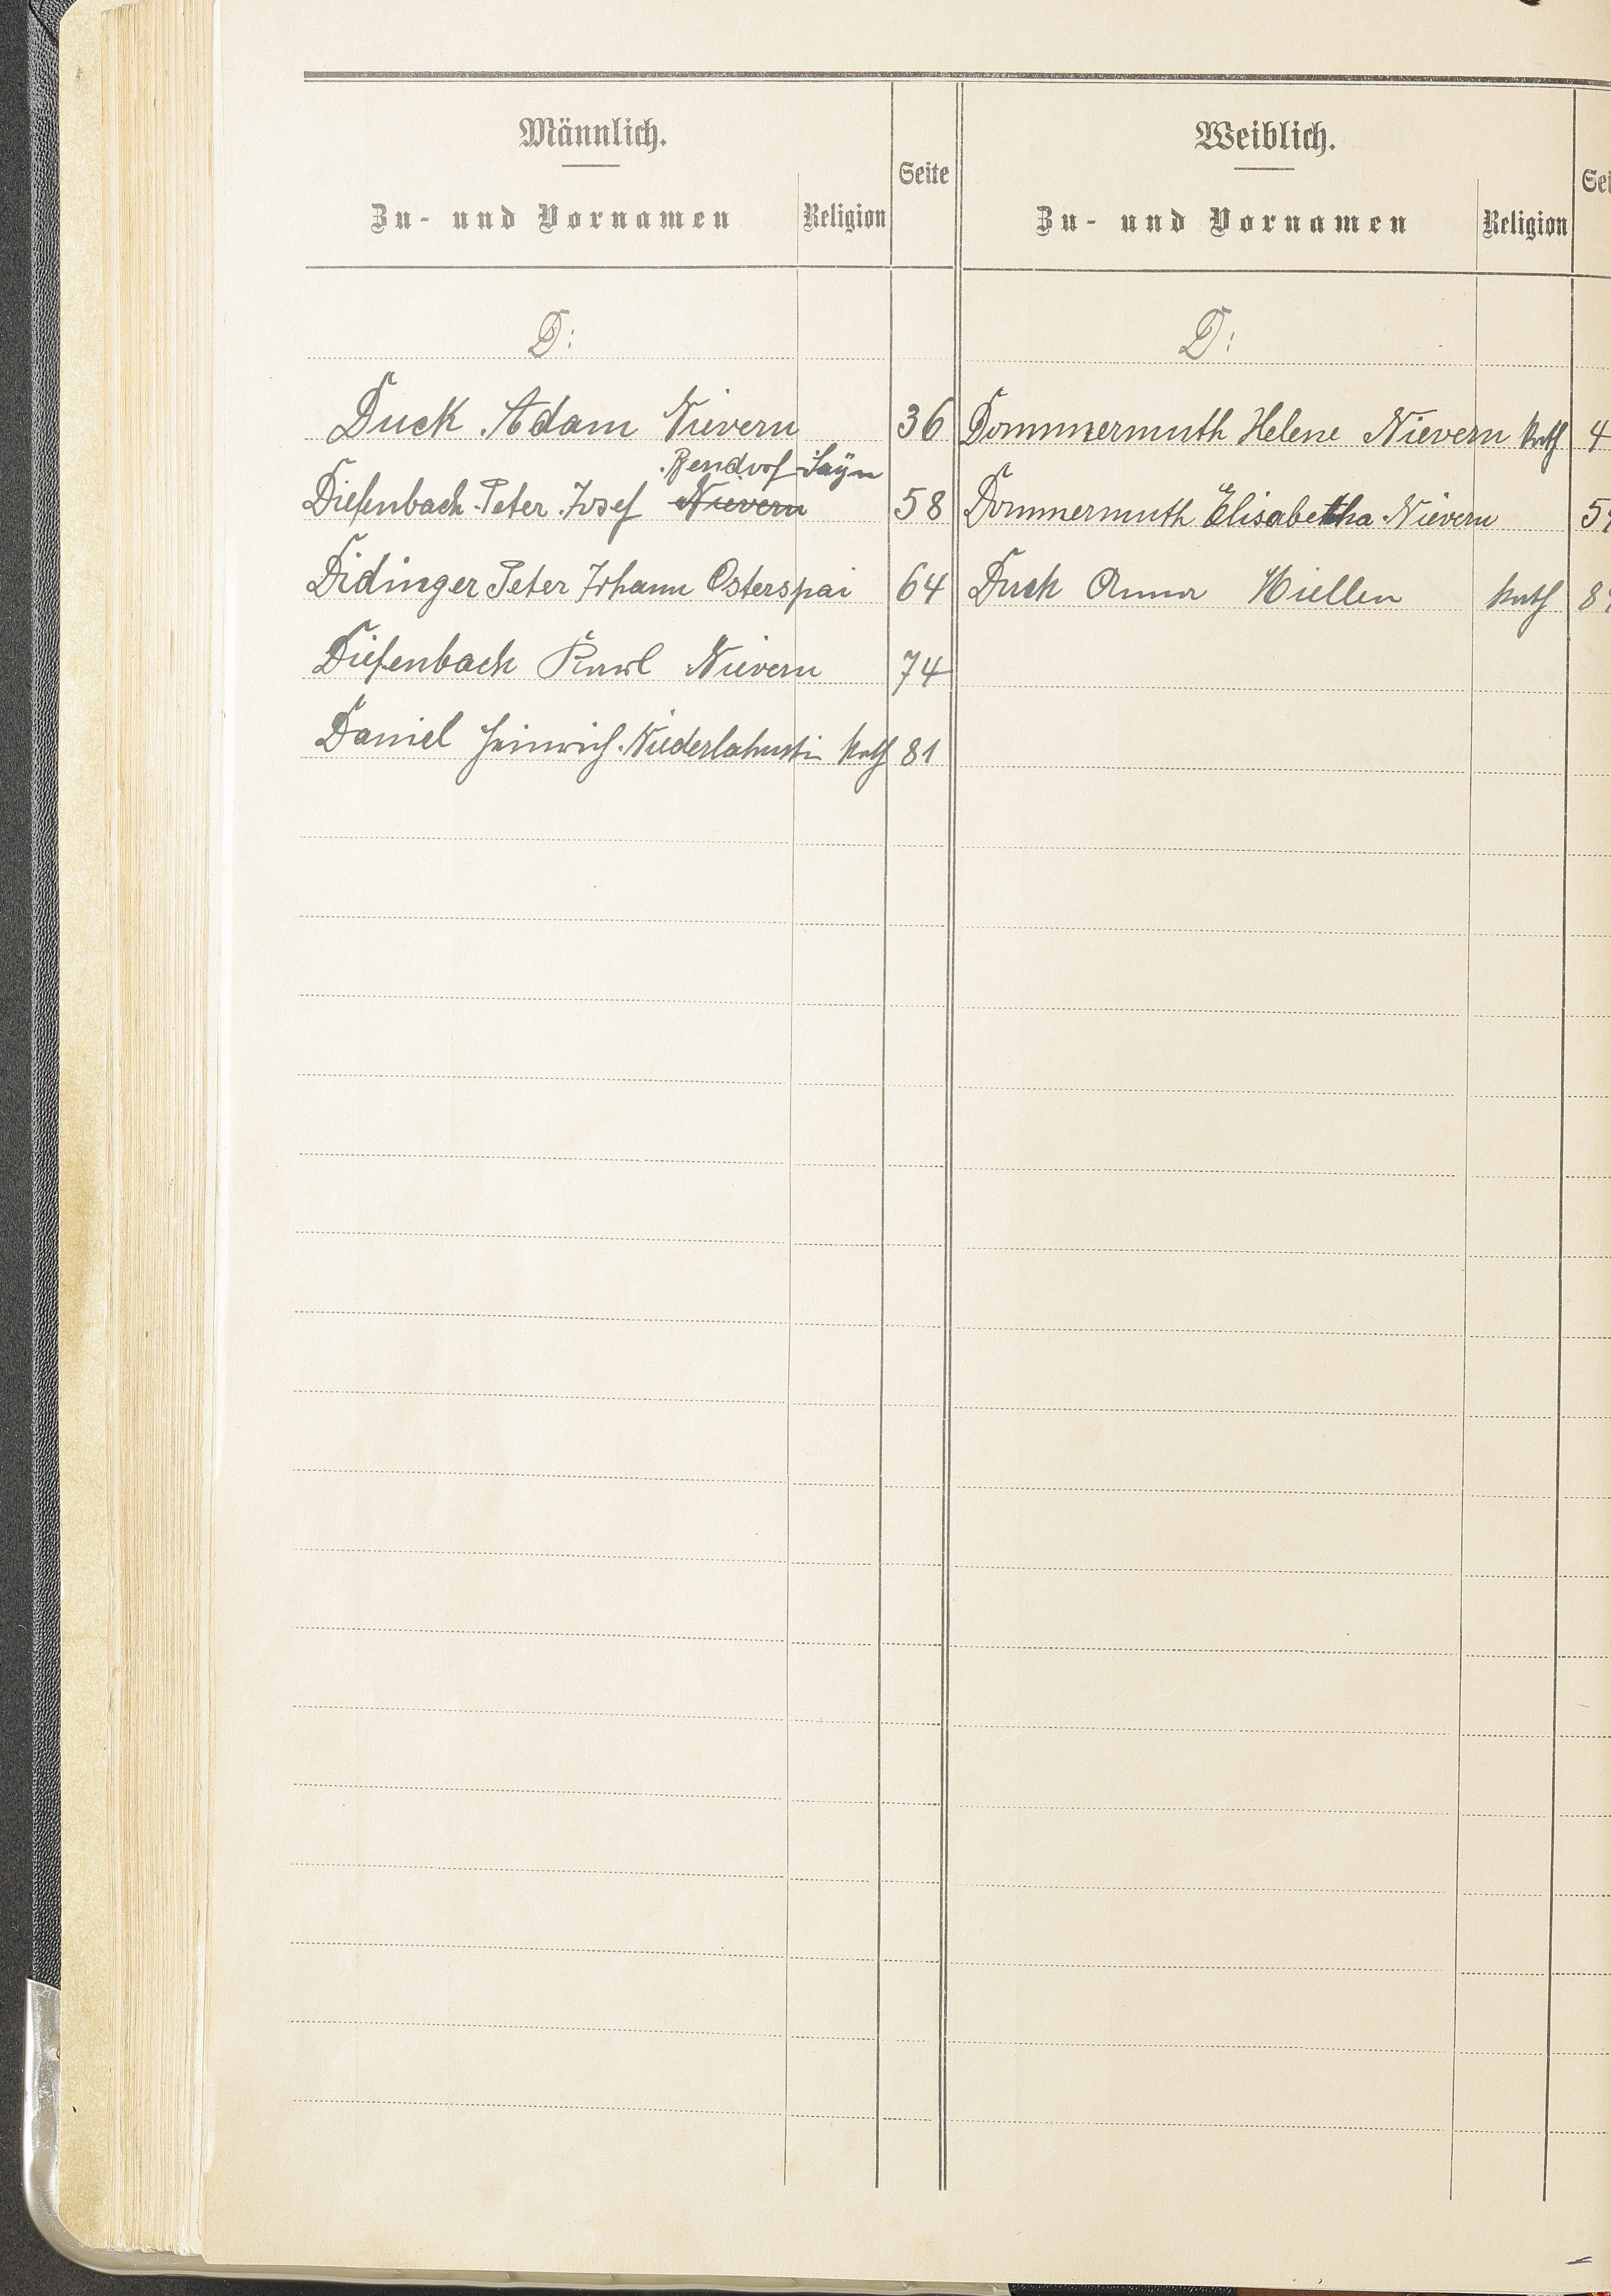 Männlich.
Zu- und Vornamen
Religion
Seite
D:
Duck Adam Nievern 36
Bendorf Sayn
Diefenbach Peter Josef Nievern 58
Didinger Peter Johann Osterspai 64
Diefenbach Karl Nievern 74
Daniel Heinrich Niederlahnstein kath 81
Weiblich.
Zu- und Vornamen
Religion
Sei
D:
Dommermuth Helene Nievern kath 4
Dommermuth Elisabetha Nievern 59
Duck Anna Miellen kath 8